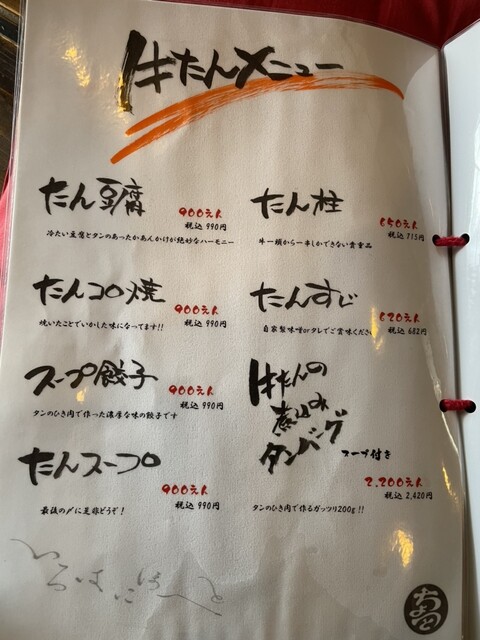 牛たんメニュー
たん豆腐
900えん
税込 990円
冷たい豆腐とタンのあったかあんかけが絶妙なハーモニー
たんコロ焼
900えん
税込 990円
焼いたことでいかした味になってます!!
スープ餃子
900えん
税込 990円
タンのひき肉で作った濃厚な味の餃子です
たんスープ
900えん
税込 990円
最後の〆に是非どうぞ!
たん柱
650えん
税込 715円
牛一頭から一本しかできない貴重品
たんすじ
620えん
税込 682円
自家製味噌orタレでご賞味ください
牛たんの
煮込み
タンバーグ
スープ付き
2,200えん
税込 2,420円
タンのひき肉で作るガッツリ200g!!
いろはにほへと